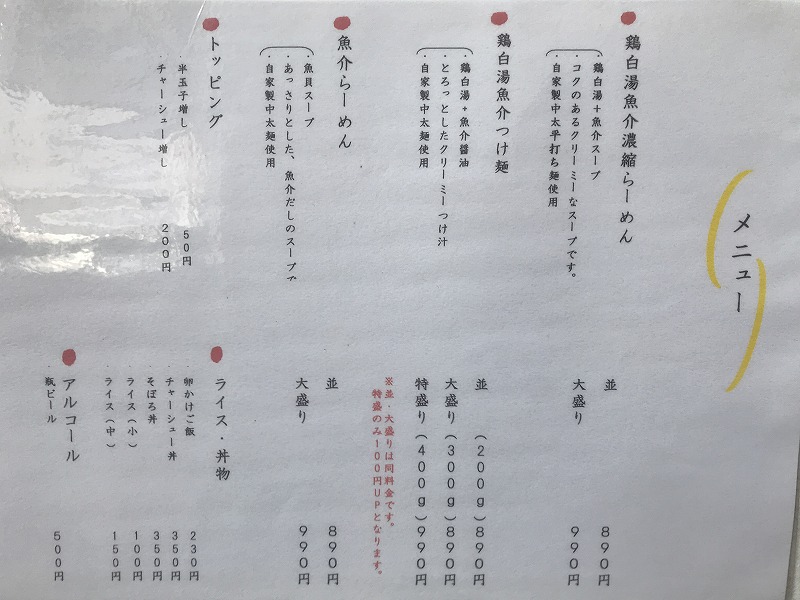 メニュー
鶏白湯魚介濃縮らーめん
・鶏白湯+魚介スープ
・コクのあるクリーミーなスープです。
・自家製中太平打ち麺使用
並 890円
大盛り 990円
鶏白湯魚介つけ麺
・鶏白湯+魚介醤油
・とろっとしたクリーミーつけ汁
・自家製中太麺使用
並 (200g) 890円
大盛り(300g) 890円
特盛り(400g) 990円
※並・大盛りは同料金です。
特盛のみ100円UPとなります。
魚介らーめん
・魚貝スープ
・あっさりとした、魚介だしのスープで
・自家製中太麺使用
並 890円
大盛り 990円
トッピング
・半玉子増し 50円
・チャーシュー増し 200円
ライス・丼物
・卵かけご飯 230円
・チャーシュー丼 350円
・そぼろ丼 350円
・ライス(小) 100円
・ライス(中) 150円
アルコール
・瓶ビール 500円